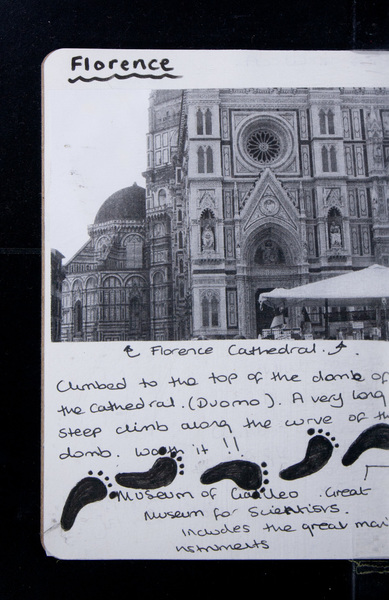 Florence
Florence Cathedral.
Climbed to the top of the domb of
the cathedral. (Duomo). A very long
steep climb along the curve of th
domb. Worth it !!
Museum of Galileo. Great
Museum for Scientists.
Includes the great mari
nstruments